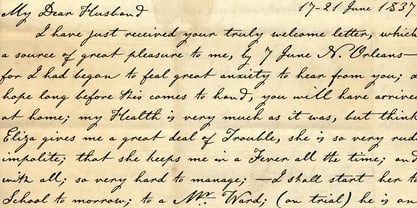 My Dear Husband 17-21 June 1837
I have just received your truly welcome letter, which
a source of great pleasure to me, by 7 June N. Orleans—
for I had began to feel great anxiety to hear from you; a
hope long before this comes to hand, you will have arrived
at home; my Health is very much as it was, but think
Eliza gives me a great deal of Trouble, she is so very rud
impolite; that she keeps me in a Fever all the time; and
with all; so very hard to manage; — I shall start her to
School to morrow; to a Mr. Ward; (on trial) he is an